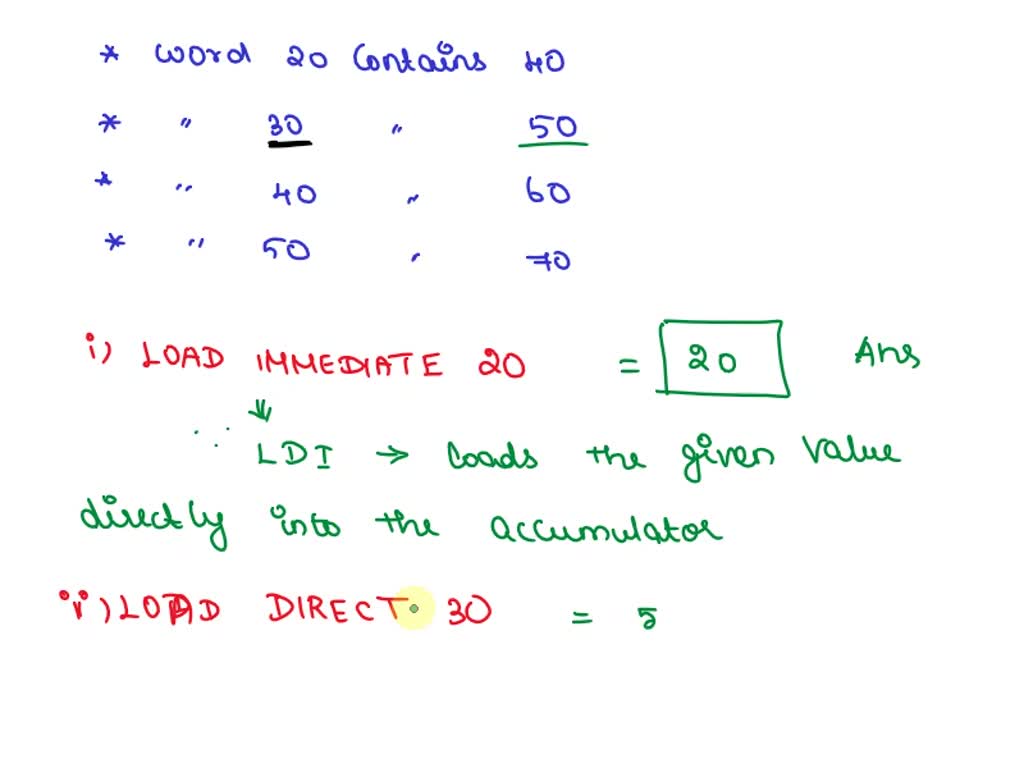 * Word 20 Contains 40
* " 30 " 50
* " 40 " 60
* " 50 " 70
i) LOAD IMMEDIATE 20 = 20 Ans
∵ LDI → loads the given value
directly into the accumulator
ii) LOAD DIRECT 30 = 5